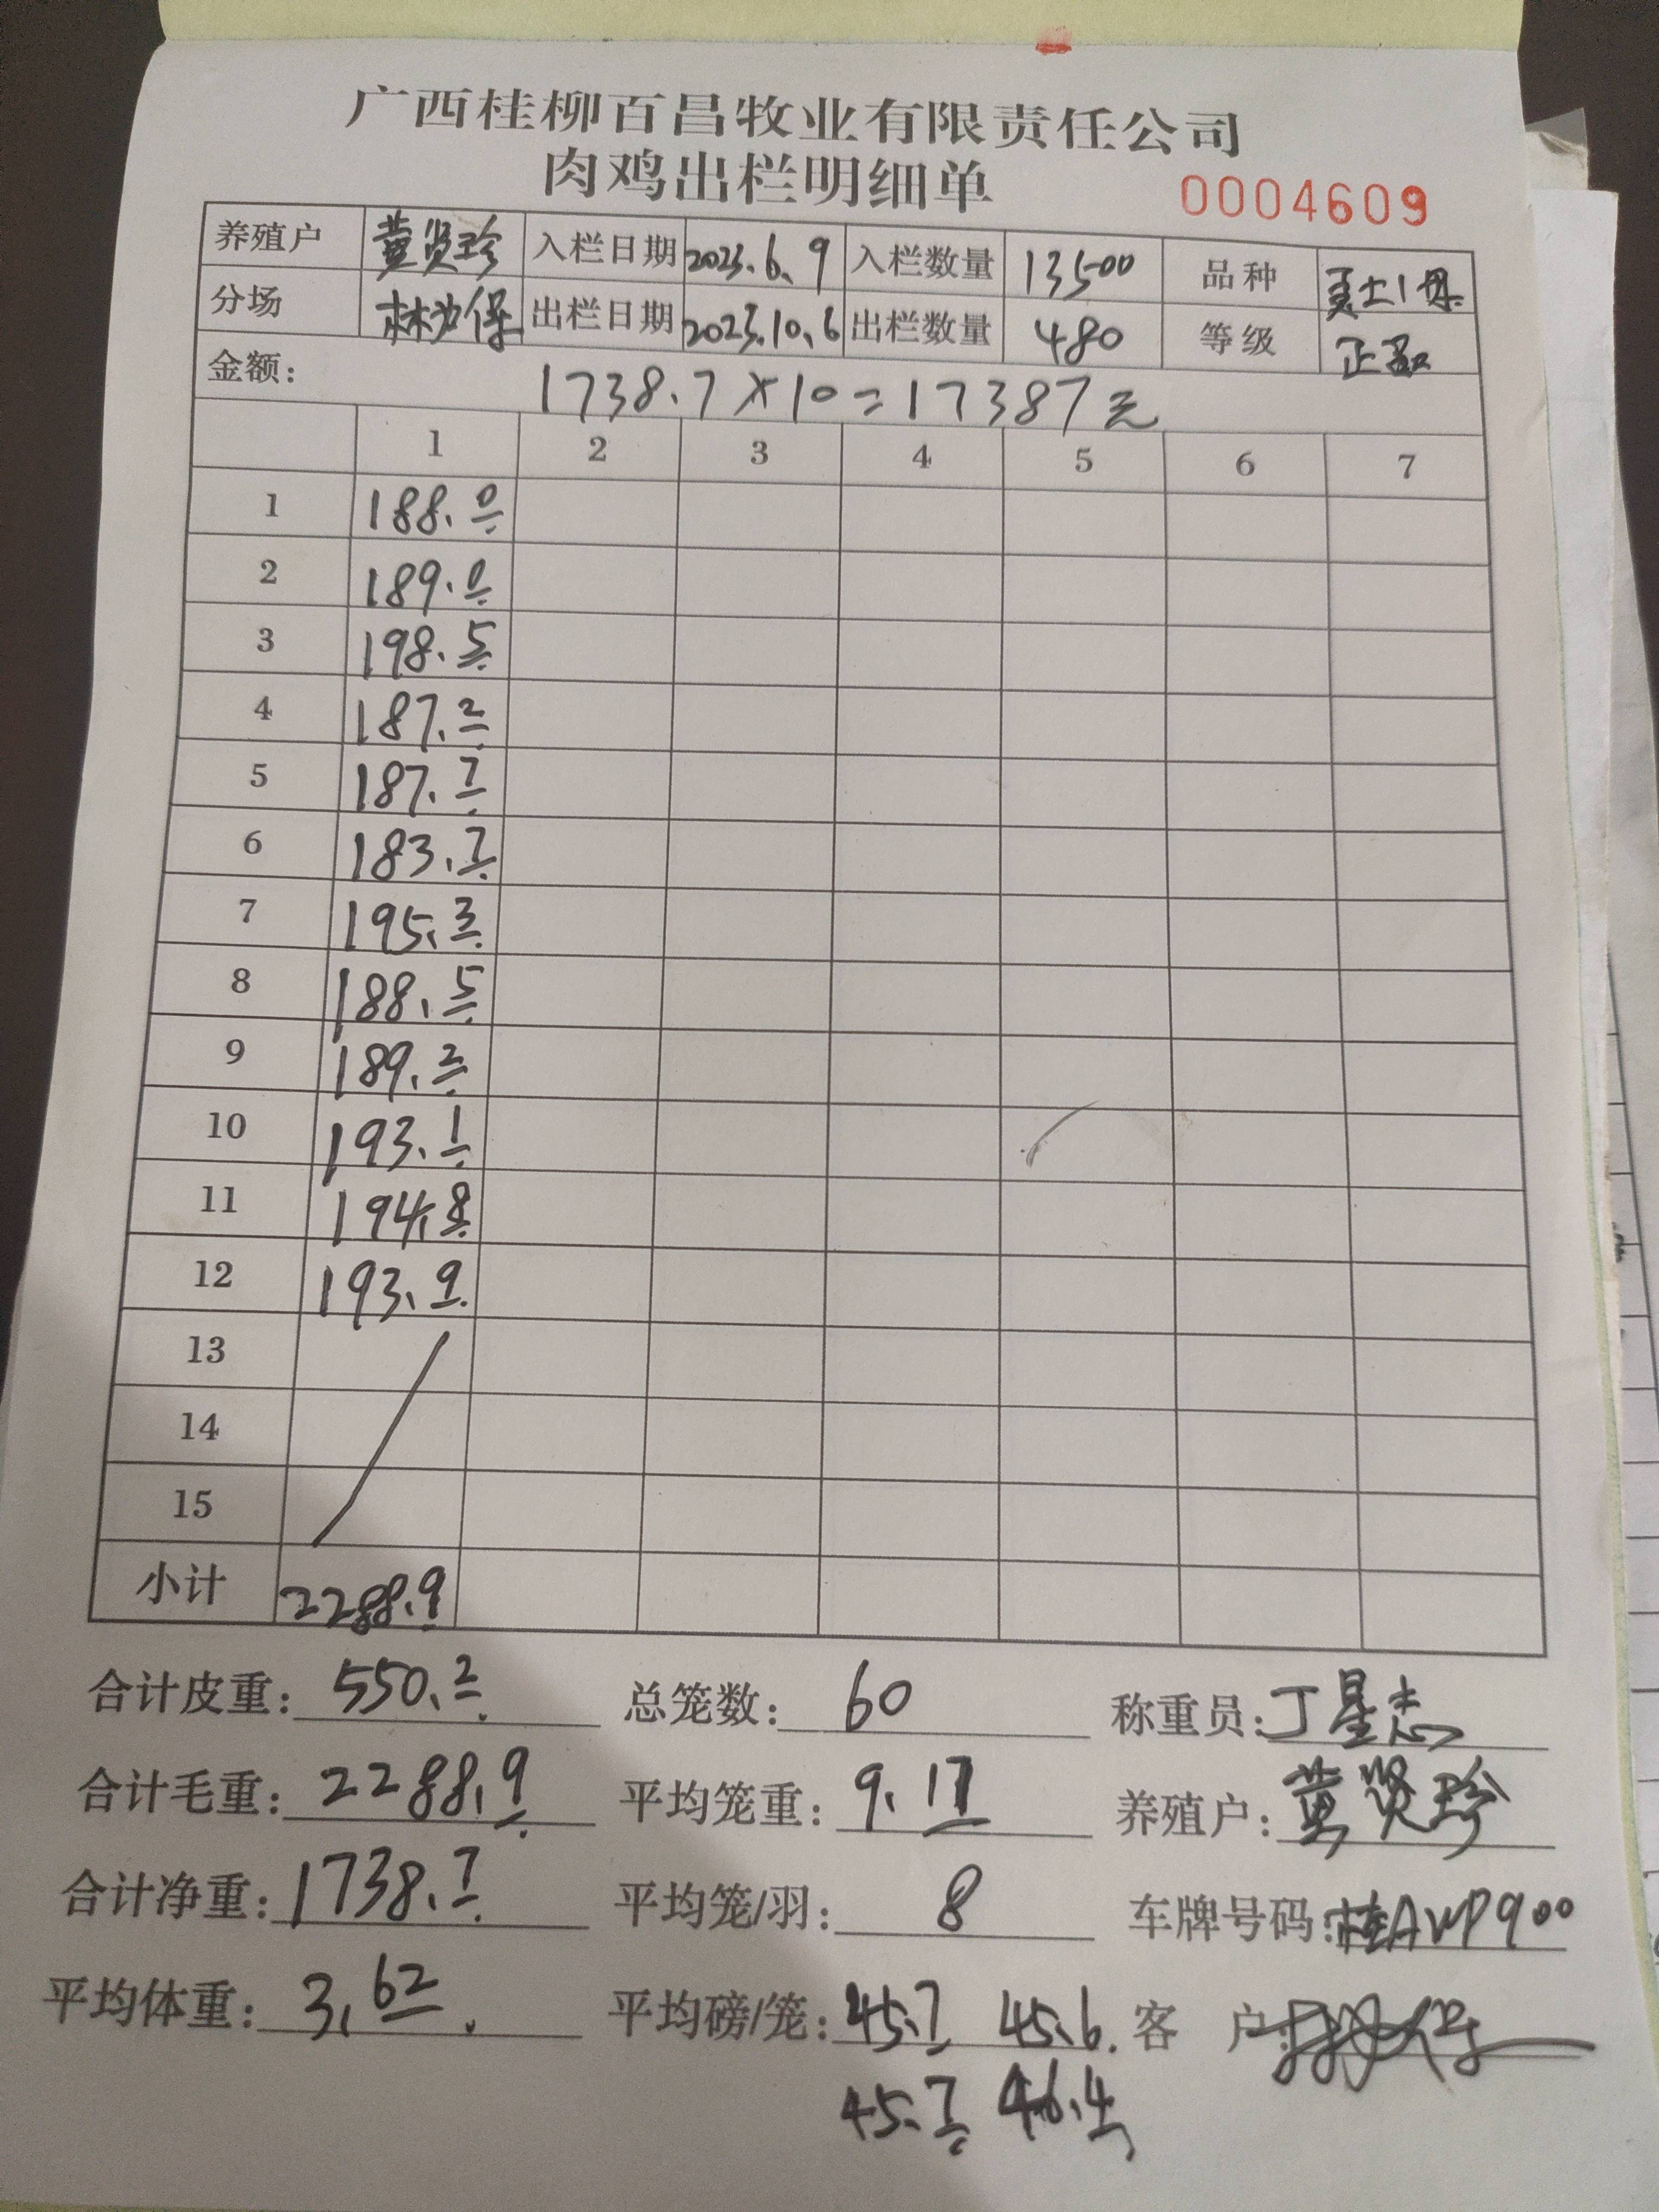 广西桂柳百昌牧业有限责任公司
肉鸡出栏明细单
0004609
养殖户 黄贤珍 入栏日期 2023.6.9 入栏数量 13500 品种
分场 出栏日期 2023.10.6 出栏数量 480 等级 正品
金额: 1738.7×10=17387元
1 2 3 4 5 6 7
1 188.0
2 189.0
3 198.5
4 187.2
5 187.7
6 183.7
7 195.3
8 188.5
9 189.2
10 193.1
11 194.8
12 193.9
13
14
15
小计 2288.9
合计皮重: 550.2 总笼数: 60 称重员: 丁星志
合计毛重: 2288.9 平均笼重: 9.17 养殖户: 黄贤珍
合计净重: 1738.7 平均笼/羽: 8 车牌号码: 桂AVP900
平均体重: 3.62 平均磅/笼: 45.7 45.6 客 户:
45.7 46.4